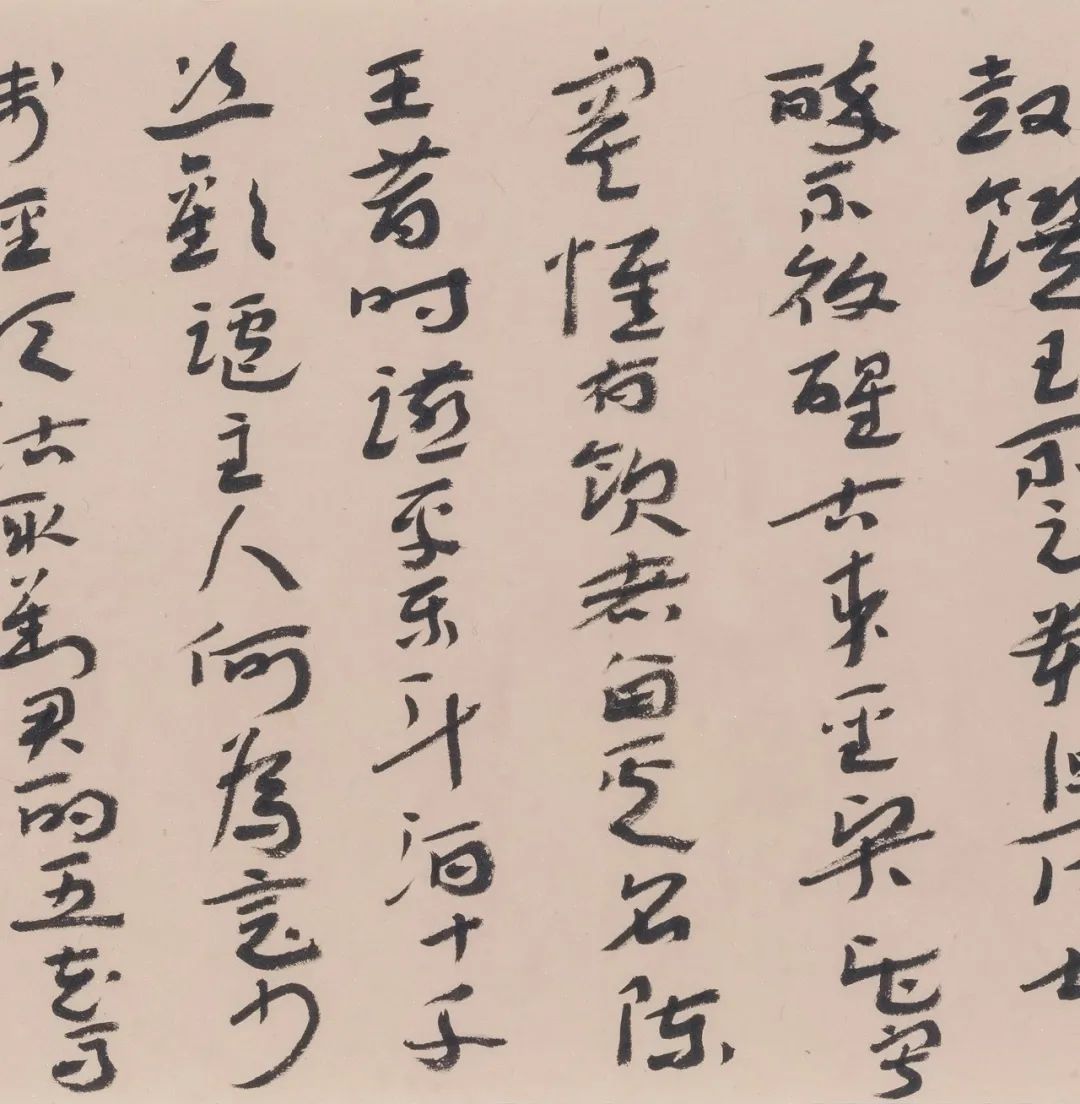 鼓饌玉不足貴但
醉不復醒古來聖賢皆寂
寞惟有飲者留其名陳
王昔時讌平樂斗酒十千
恣歡謔主人何為言少
錢徑須沽取對君酌五花馬